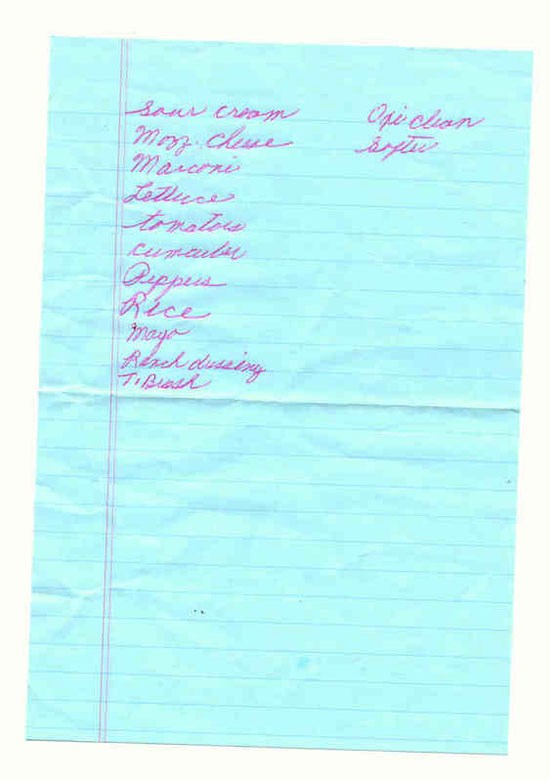 Sour cream
Mozz. Cheese
Marconi
Lettuce
tomatoes
cucumber
Peppers
Rice
Mayo
Ranch dressing
T. Brush
Oxi clean
Softer